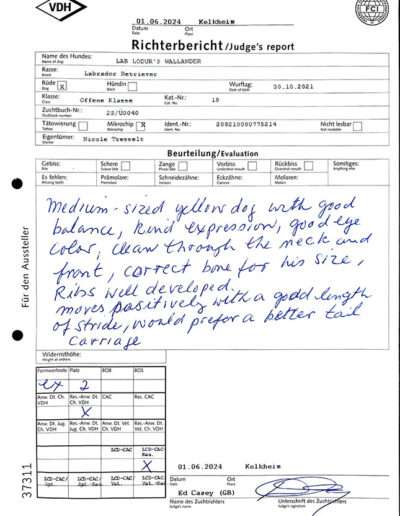 VDH
FCI
01.06.2024 Kelkheim
Datum Ort
Date Place
Richterbericht/Judge's report
Name des Hundes: LAB LODUR'S WALLANDER
Name of dog
Rasse: Labrador Retriever
Breed
Rüde X Hündin Wurftag: 30.10.2021
Dog Bitch Date of birth
Klasse: Offene Klasse Kat.-Nr.: 18
Class Cat. No.
Zuchtbuch-Nr.: 23/U0040
Studbook number
Tätowierung Mikrochip X Ident.-Nr. Nicht lesbar
Tattoo Microchip Ident. No. Not readable
Eigentümer:
Owner
Beurteilung/Evaluation
Gebiss: Schere Zange Vorbiss Rückbiss Sonstiges:
Es fehlen: Prämolare: Schneidezähne: Eckzähne: Molaren:
Medium-sized yellow dog with good
balance, kind expression, good eye
color, clean through the neck and
front, correct bone for his size,
Ribs well developed.
moves positively with a good length
of stride, would prefer a better tail
carriage
Für den Aussteller
Widerristhöhe:
Height at withers
Formwertnote Platz BOB BOS
ex 2
Anw. Dt. Ch. VDH Res.-Anw. Dt. Ch. VDH CAC Res. CAC
X
Anw. Dt. Jug. Ch. VDH Res.-Anw. Dt. Jug. Ch. VDH Anw. Dt. Vet. Ch. VDH Res.-Anw. Dt. Vet. Ch. VDH
LCD-CAC LCD-CAC Res.
X
37311
01.06.2024 Kelkheim
Datum Ort
Date Place
Ed Casey (GB)
Name des Zuchtrichters Unterschrift des Zuchtrichters
Judge's name Judge's signature